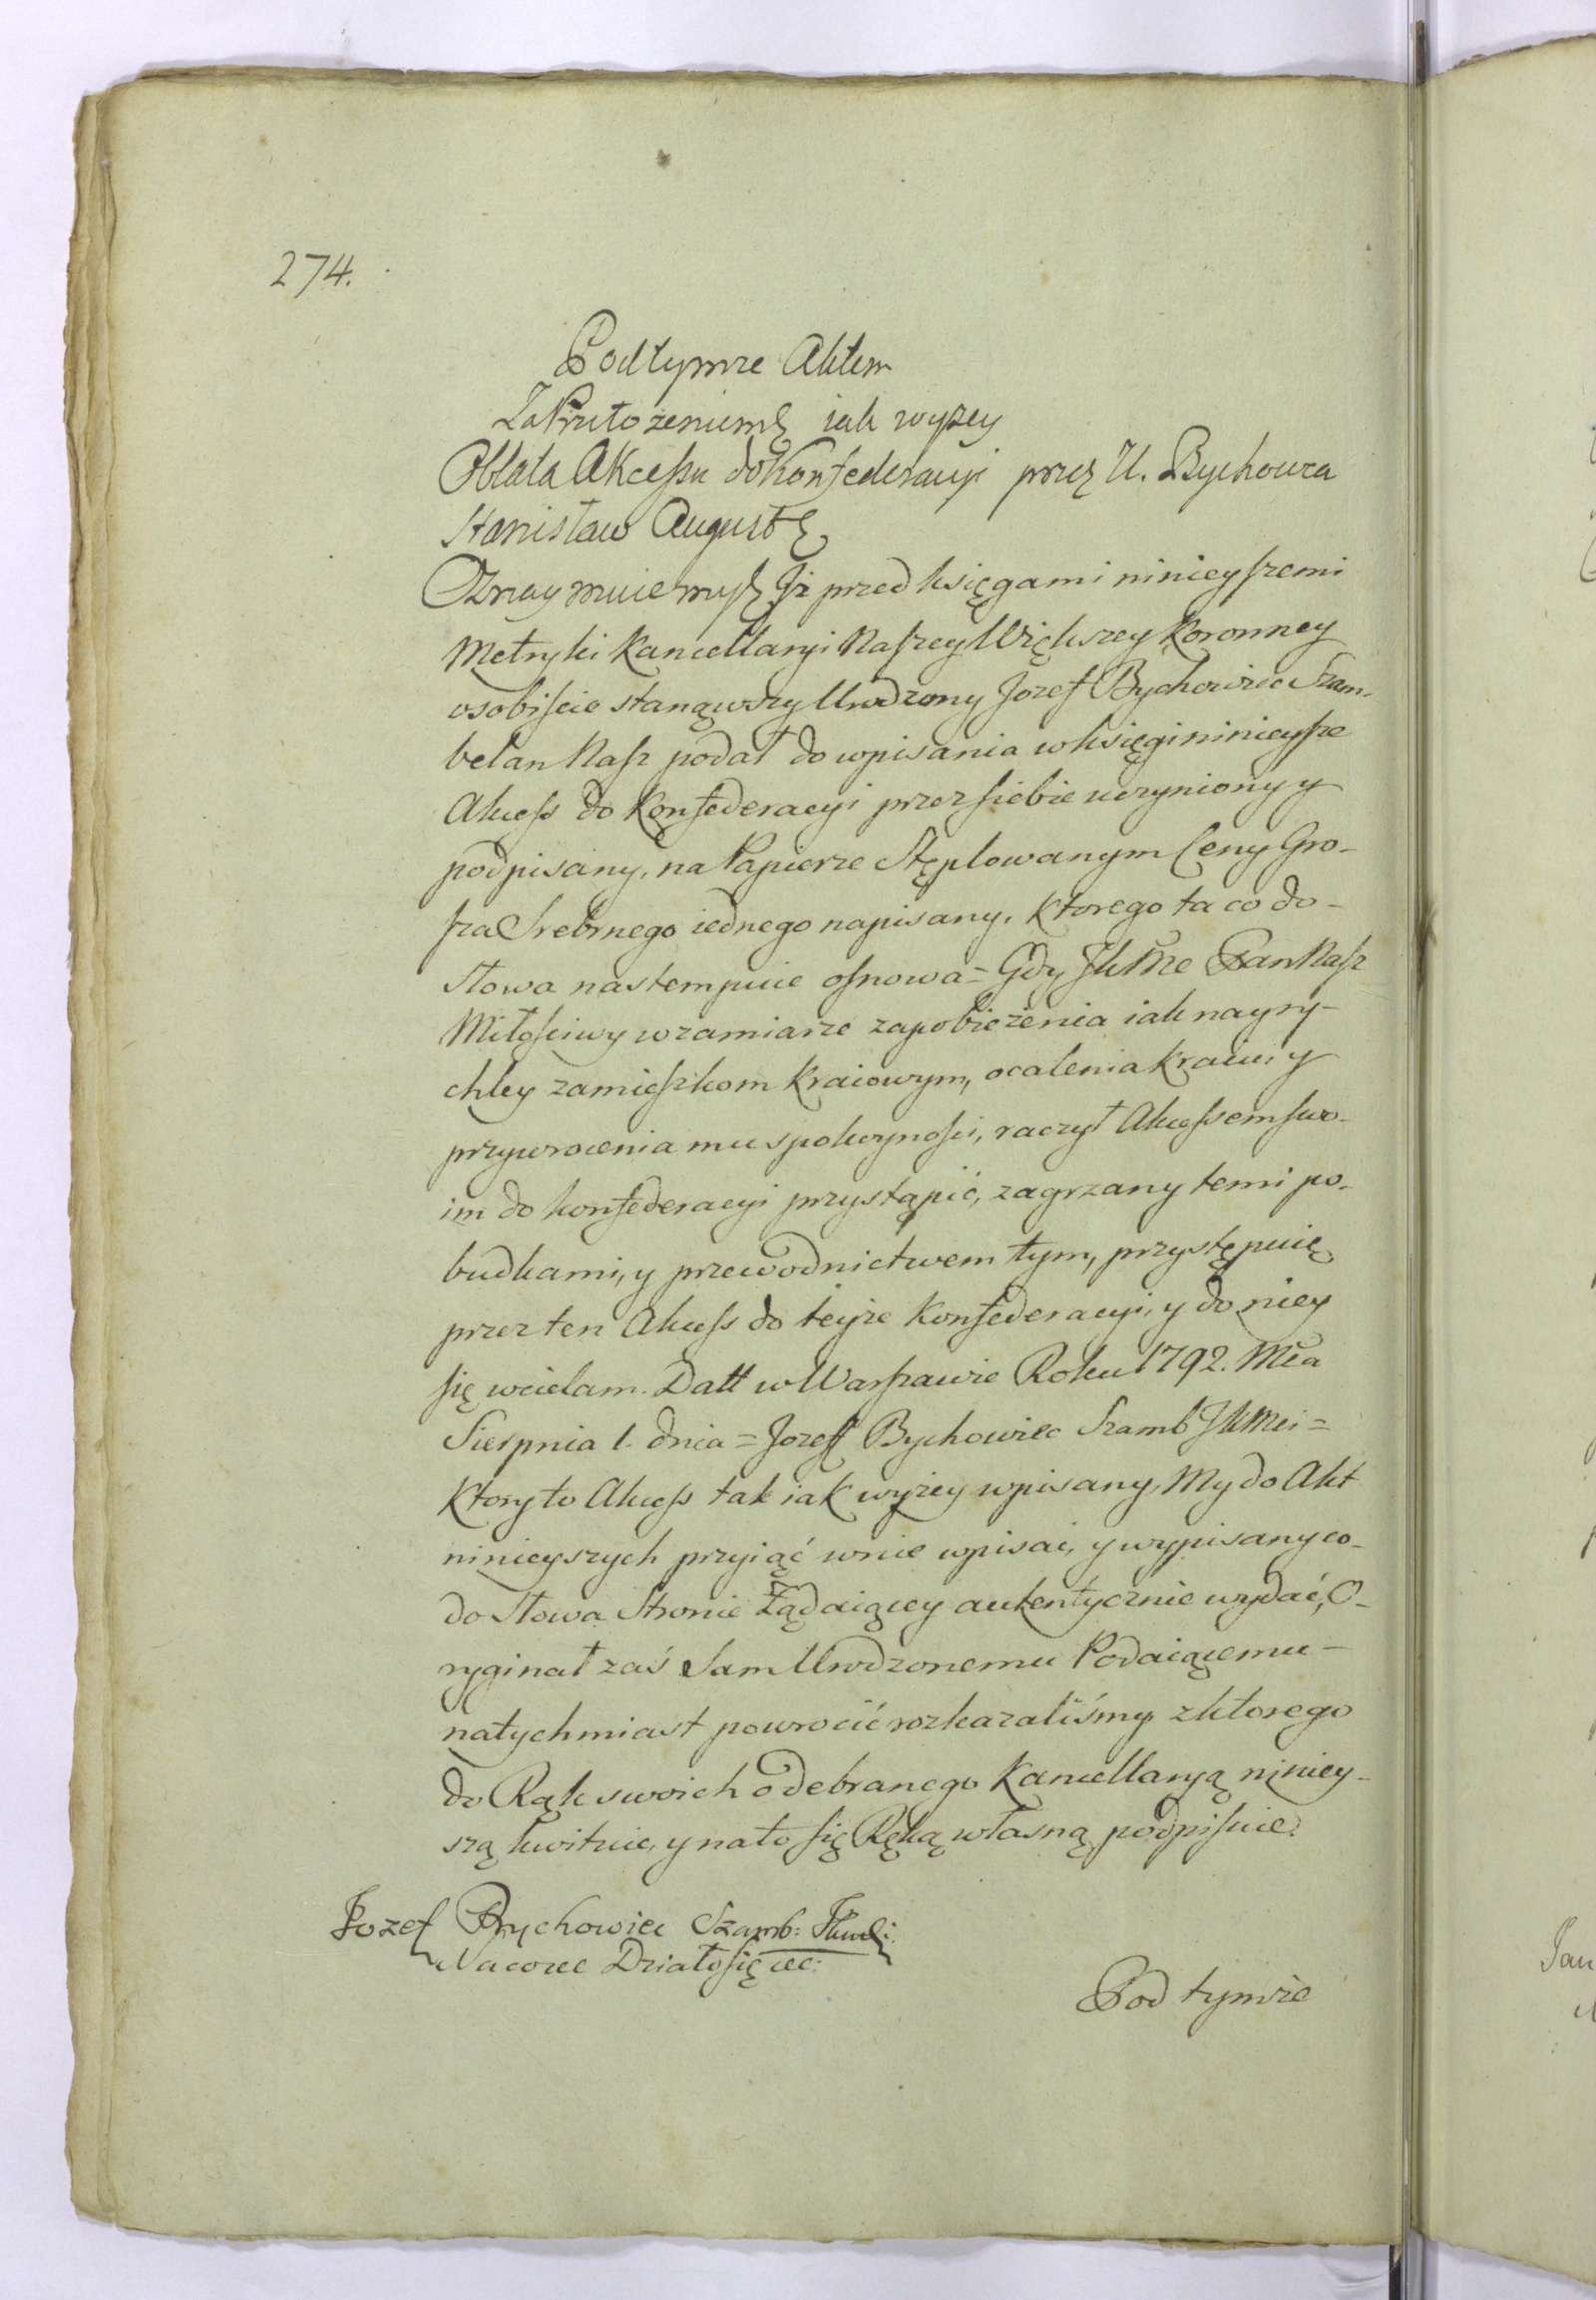 274.
Pod tymże Aktem
Za Przełożeniem etc iak wyżey
Oblata Akcessu do Konfederacyi przez U. Bychowca
Stanisław August etc
Oznaymuiemy etc Iż przed księgami ninieyszemi
Metryki Kancellaryi Naszey Większey Koronney
osobiście stanąwszy Urodzony Jozef Bychowiec Szam-
belan Nasz podał do wpisania w księgi ninieysze
Akcess do Konfederacyi przez siebie uczyniony y
podpisany, na Papierze Stęplowanym Ceny Gro-
sza Srebrnego iednego napisany, ktorego ta co do-
słowa nastempuie osnowa = Gdy JKMć Pan Nasz
Miłościwy w zamiarze zapobieżenia iak nayry-
chley zamieszkom kraiowym, ocalenia kraiu y
przywrocenia mu spokoyności, raczył Akcessem swo-
im do konfederacyi przystąpić, zagrzany temi po-
budkami, y przewodnictwem tym, przystępuię
przez ten Akcess do teyże Konfederacyi, y do niey
się wcielam. Datt w Warszawie Roku 1792. Mca
Sierpnia 1. dnia = Jozeff Bychowiec Szamb JKMci =
Ktory to Akcess tak iak wyżey wpisany, My do Akt
ninieyszych przyiąć wnie wpisać, y wypisany co-
do Słowa Stronie Żądaiącey autentycznie wydać, O-
ryginał zaś Sam Urodzonemu Podaiącemu -
natychmiast powrocić rozkazaliśmy z ktorego
do Rąk swoich odebranego Kancellaryą niniey-
szą kwituie, y na to się Ręką własną podpisuie.
Jozef Bychowiec Szamb: JKMci:
Na co rec Działo się etc:
Pod tymże